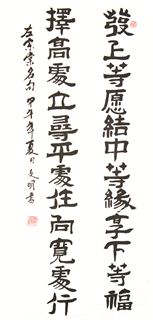 發上等愿結中等緣享下等福
擇高處立尋平處住向寬處行
左宗棠名句甲午年夏月